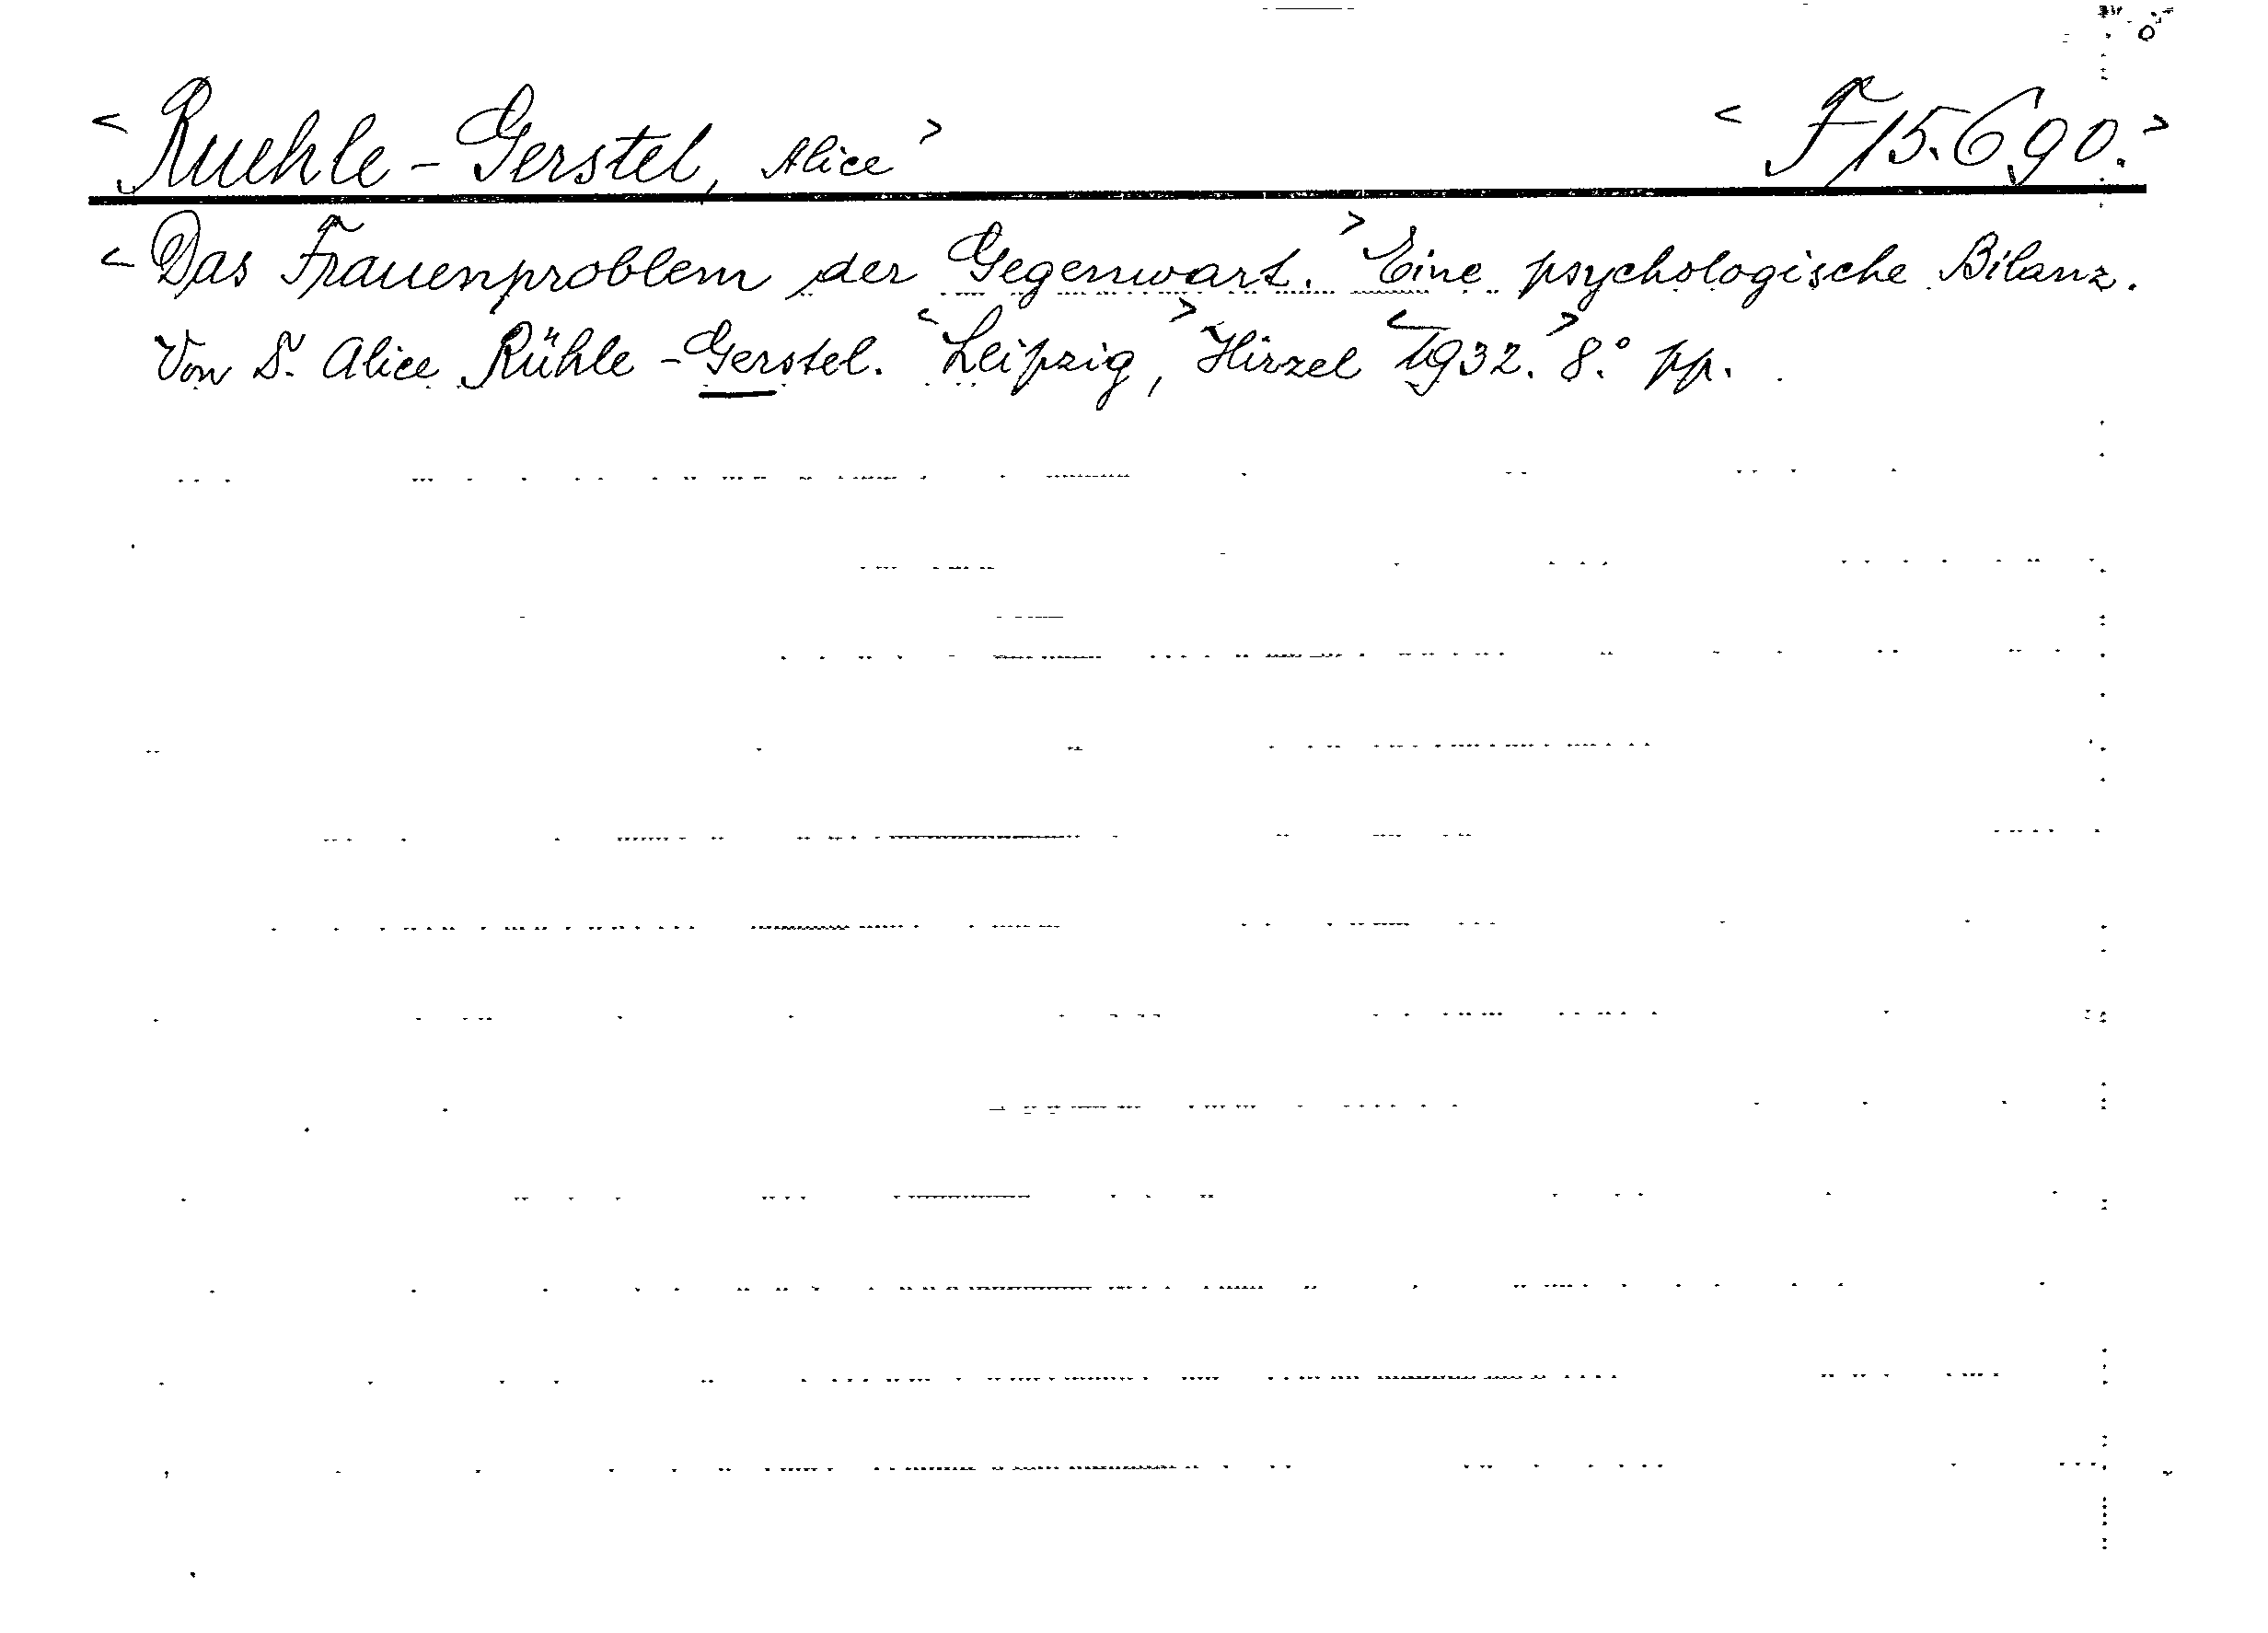 <Ruehle-Gerstel, Alice> <F 15.690.>
<Das Frauenproblem der Gegenwart.> Eine psychologische Bilanz.
Von Dr. Alice Rühle-Gerstel. <Leipzig,> Hirzel <1932.> 8.° pp.